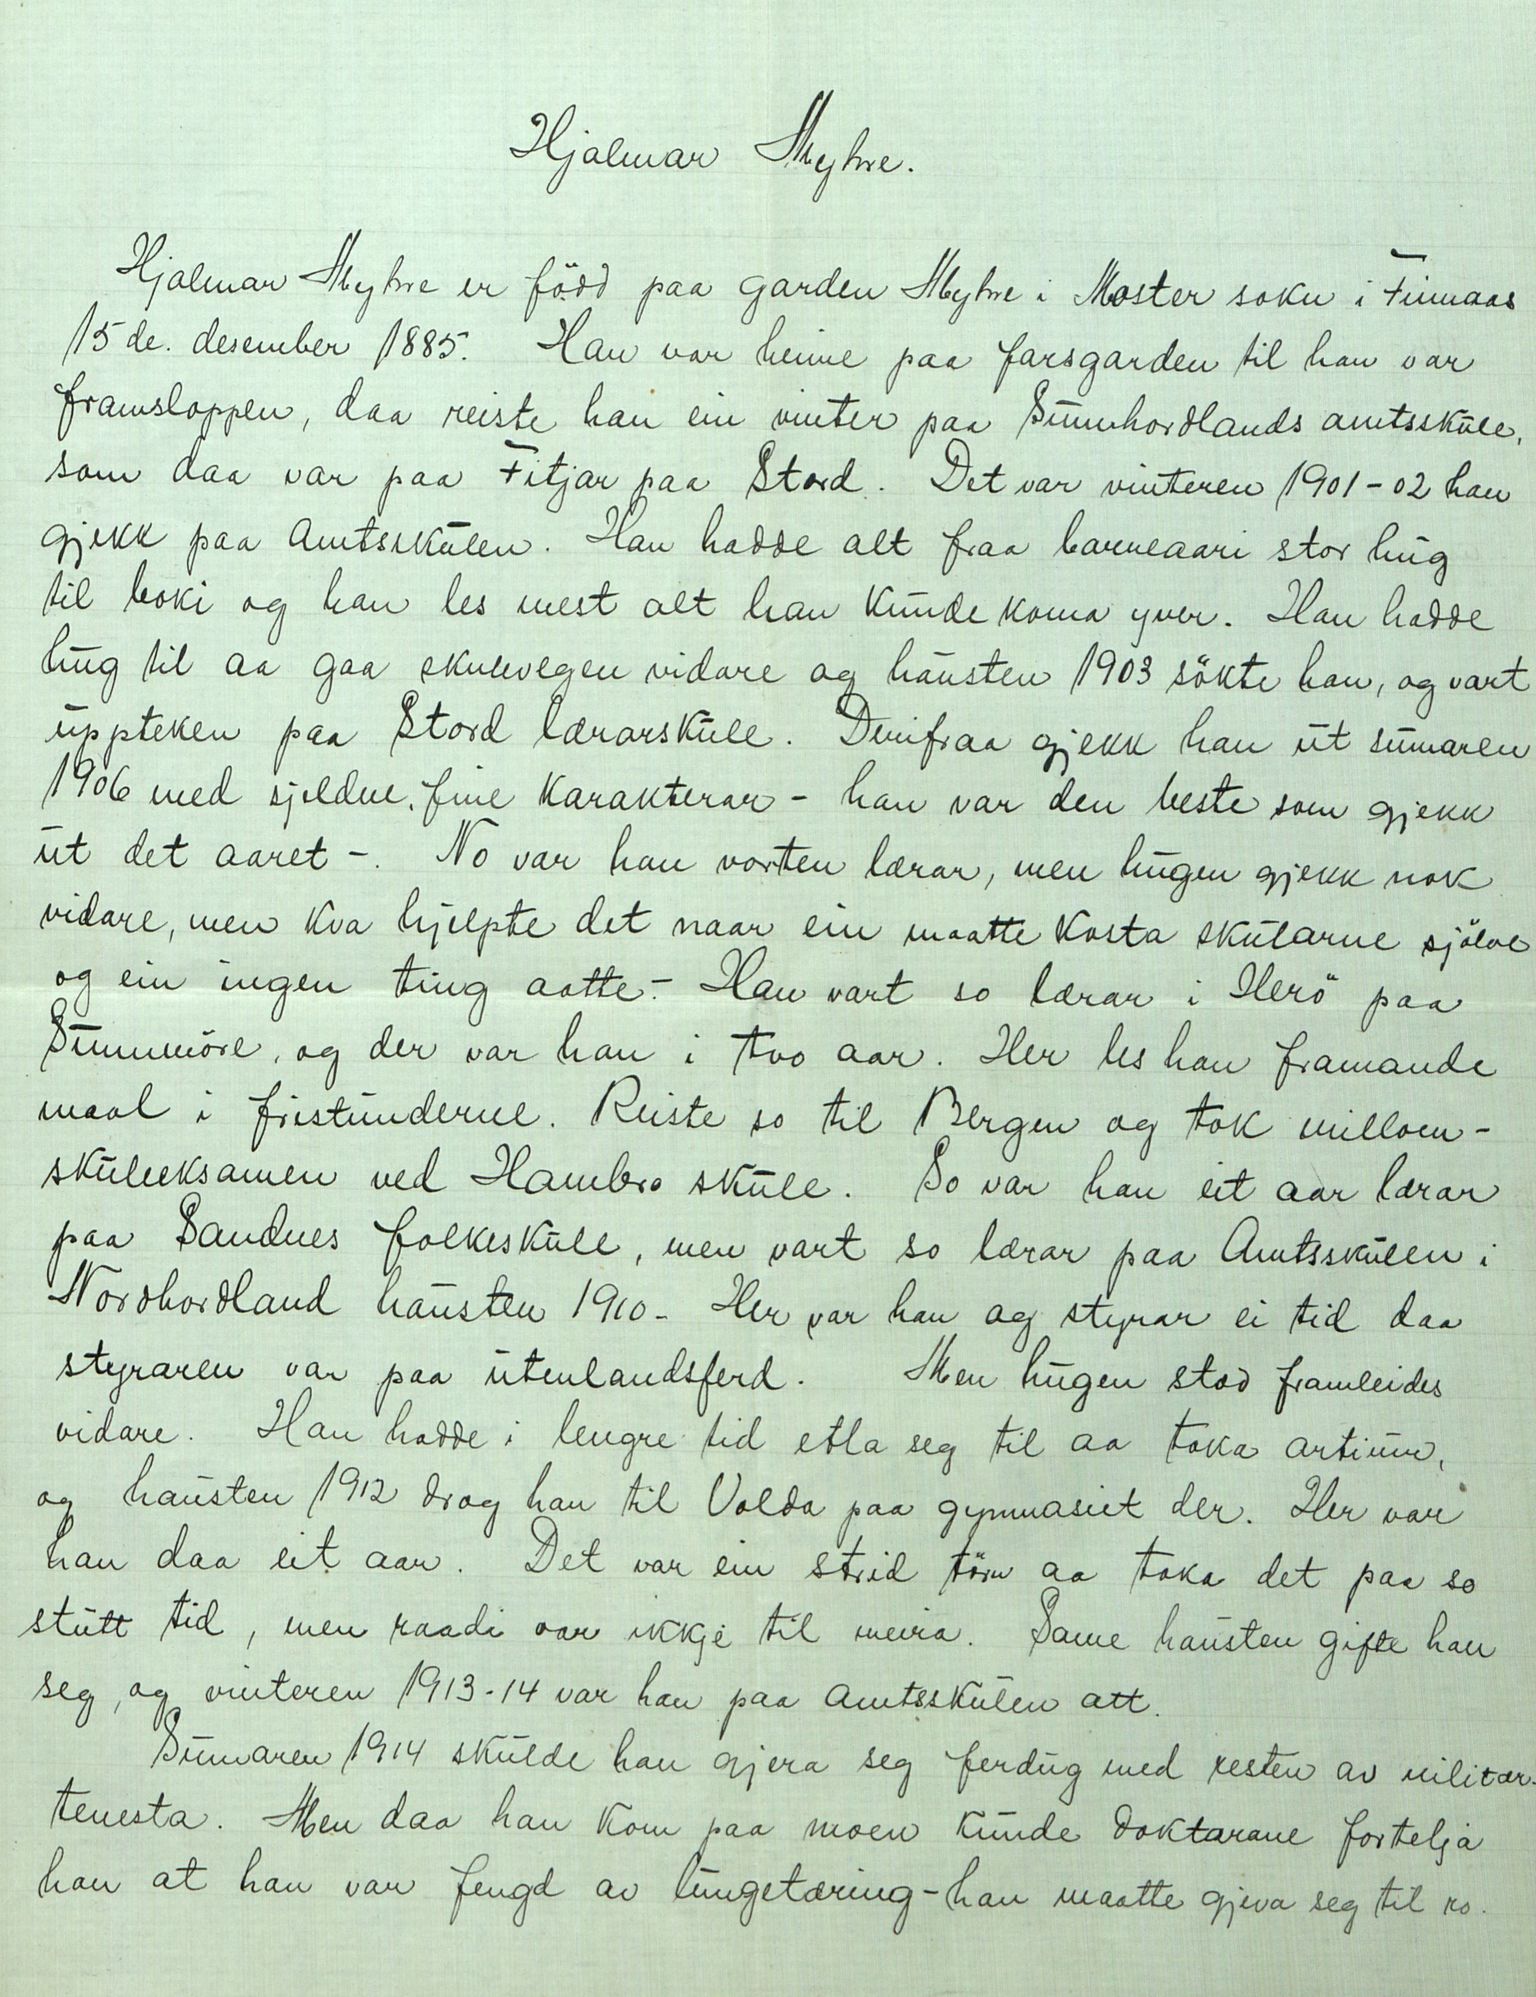 Hjalmar Myhre.
Hjalmar Myhre er född paa garden Myhre i Moster sokn i Finnaas
15de. desember 1885. Han var heime paa farsgarden til han var
framsloppen, daa reiste han ein vinter paa Sunnhordlands amtsskule,
som daa var paa Fitjar paa Stord. Det var vinteren 1901-02 han
gjekk paa Amtsskulen. Han hadde alt fraa barneaari stor hug
til boki og han les mest alt han kunde koma yver. Han hadde
hug til aa gaa skulevegen vidare og hausten 1903 sökte han, og vart
uppteken paa Stord lærarskule. Derifraa gjekk han ut sumaren
1906 med sjeldne, fine karakterar - han var den beste som gjekk
ut det aaret -. No var han vorten lærar, men hugen gjekk nok
vidare, men kva hjelpte det naar ein maatte kosta skularne sjölve
og ein ingen ting aatte. - Han vart so lærar i Herö paa
Sunnmöre, og der var han i tvo aar. Her les han framande
maal i fristunderne. Reiste so til Bergen og tok millom-
skuleeksamen ved Hambro skule. So var han eit aar lærar
paa Sandnes folkeskule, men vart so lærar paa Amtsskulen i
Nordhordland hausten 1910. - Her var han og styrar ei tid daa
styraren var paa utenlandsferd. Men hugen stod framleides
vidare. Han hadde i lengre tid etla seg til aa taka artium,
og hausten 1912 drog han til Volda paa gymnasiet der. Her var
han daa eit aar. Det var ein strid törn aa taka det paa so
stutt tid, men raadi var ikkje til meira. Same hausten gifte han
seg, og vinteren 1913-14 var han paa amtsskulen att.
Sumaren 1914 skulde han gjera seg ferdug med resten av militær-
tenesta. Men daa han kom paa moen kunde doktarane fortelja
han at han var fengd av lungetæring - han maatte gjeva seg til ro.